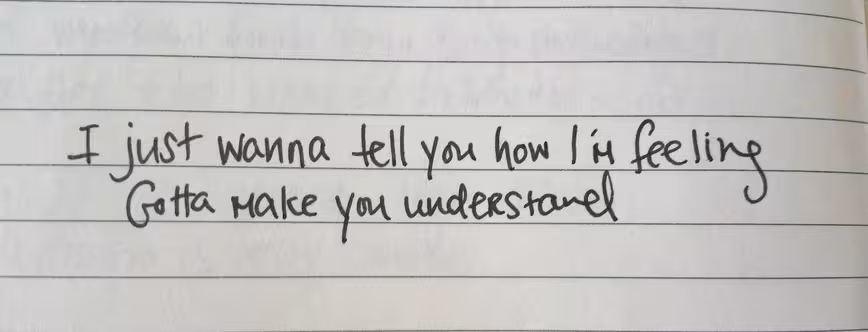 I just wanna tell you how I'm feeling
Gotta make you understand